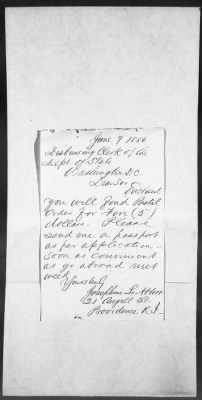 June 9 1886
Disbursing Clerk of the
Dept of State
Washington D.C
Dear Sir
Enclosed
you will find Postal
Order for Five (5)
dollars. Please
send me a passport
as per application
soon as convenient
as go abroad next
week
Yours truly
Josephine L.
21 Angell St.
Providence R.I